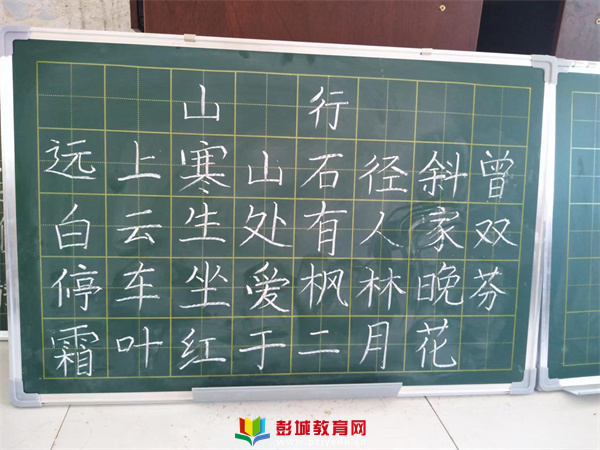 山行
远上寒山石径斜
白云生处有人家
停车坐爱枫林晚
霜叶红于二月花
曾双芬
彭城教育网